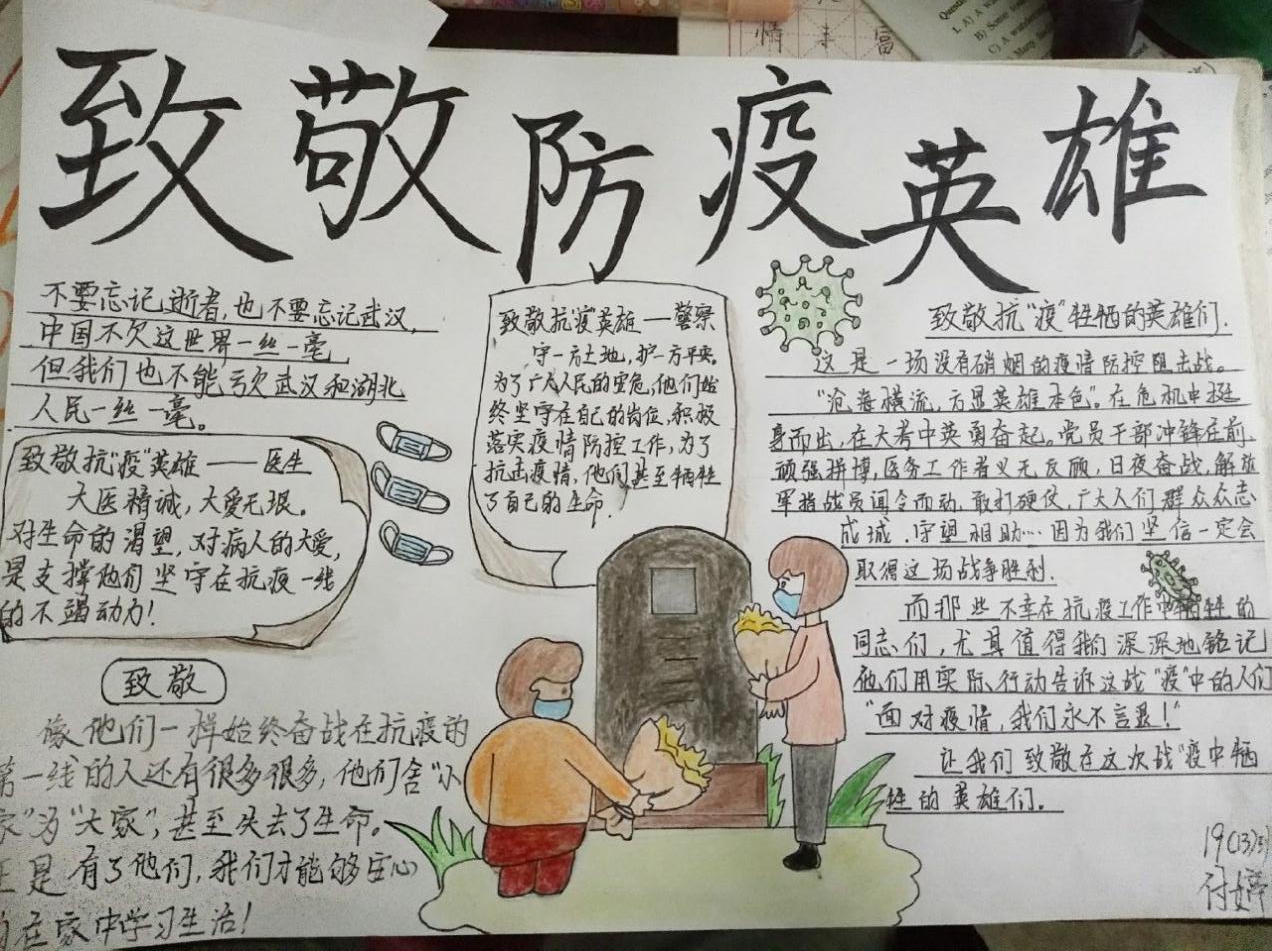 致敬防疫英雄
不要忘记逝者,也不要忘记武汉,
中国不欠这世界一丝一毫
但我们也不能亏欠武汉和湖北
人民一丝一毫。
致敬抗"疫"英雄——医生
大医精诚,大爱无垠。
对生命的渴望,对病人的大爱,
是支撑他们坚守在抗疫一线
的不竭动力!
致敬
像他们一样始终奋战在抗疫的
第一线的人还有很多很多,他们舍"小
家"为"大家",甚至失去了生命。
正是有了他们,我们才能够安心
的在家中学习生活!
致敬抗"疫"英雄——警察
守一方土地,护一方平安。
为了广大人民的安危,他们始
终坚守在自己的岗位,积极
落实疫情防控工作,为了
抗击疫情,他们甚至牺牲
了自己的生命!
致敬抗"疫"牲牺的英雄们.
这是一场没有硝烟的疫情防控阻击战。
"沧海横流,方显英雄本色"。在危机中挺
身而出,在大考中英勇奋起。党员干部冲锋在前,
顽强拼搏,医务工作者义无反顾,日夜奋战,解放
军指战员闻令而动,敢打硬仗,广大人们群众众志
成城,守望相助…因为我们坚信一定会
取得这场战争胜利.
而那些不幸在抗疫工作中牺牲的
同志们,尤其值得我们深深地铭记
他们用实际行动告诉这战"疫"中的人们
"面对疫情,我们永不言退!"
让我们致敬在这次战"疫中牺
牲的英雄们。
19(13)
付婷
情 丰 富
Question
1. A) A w
B) Some
C) A wom
Many